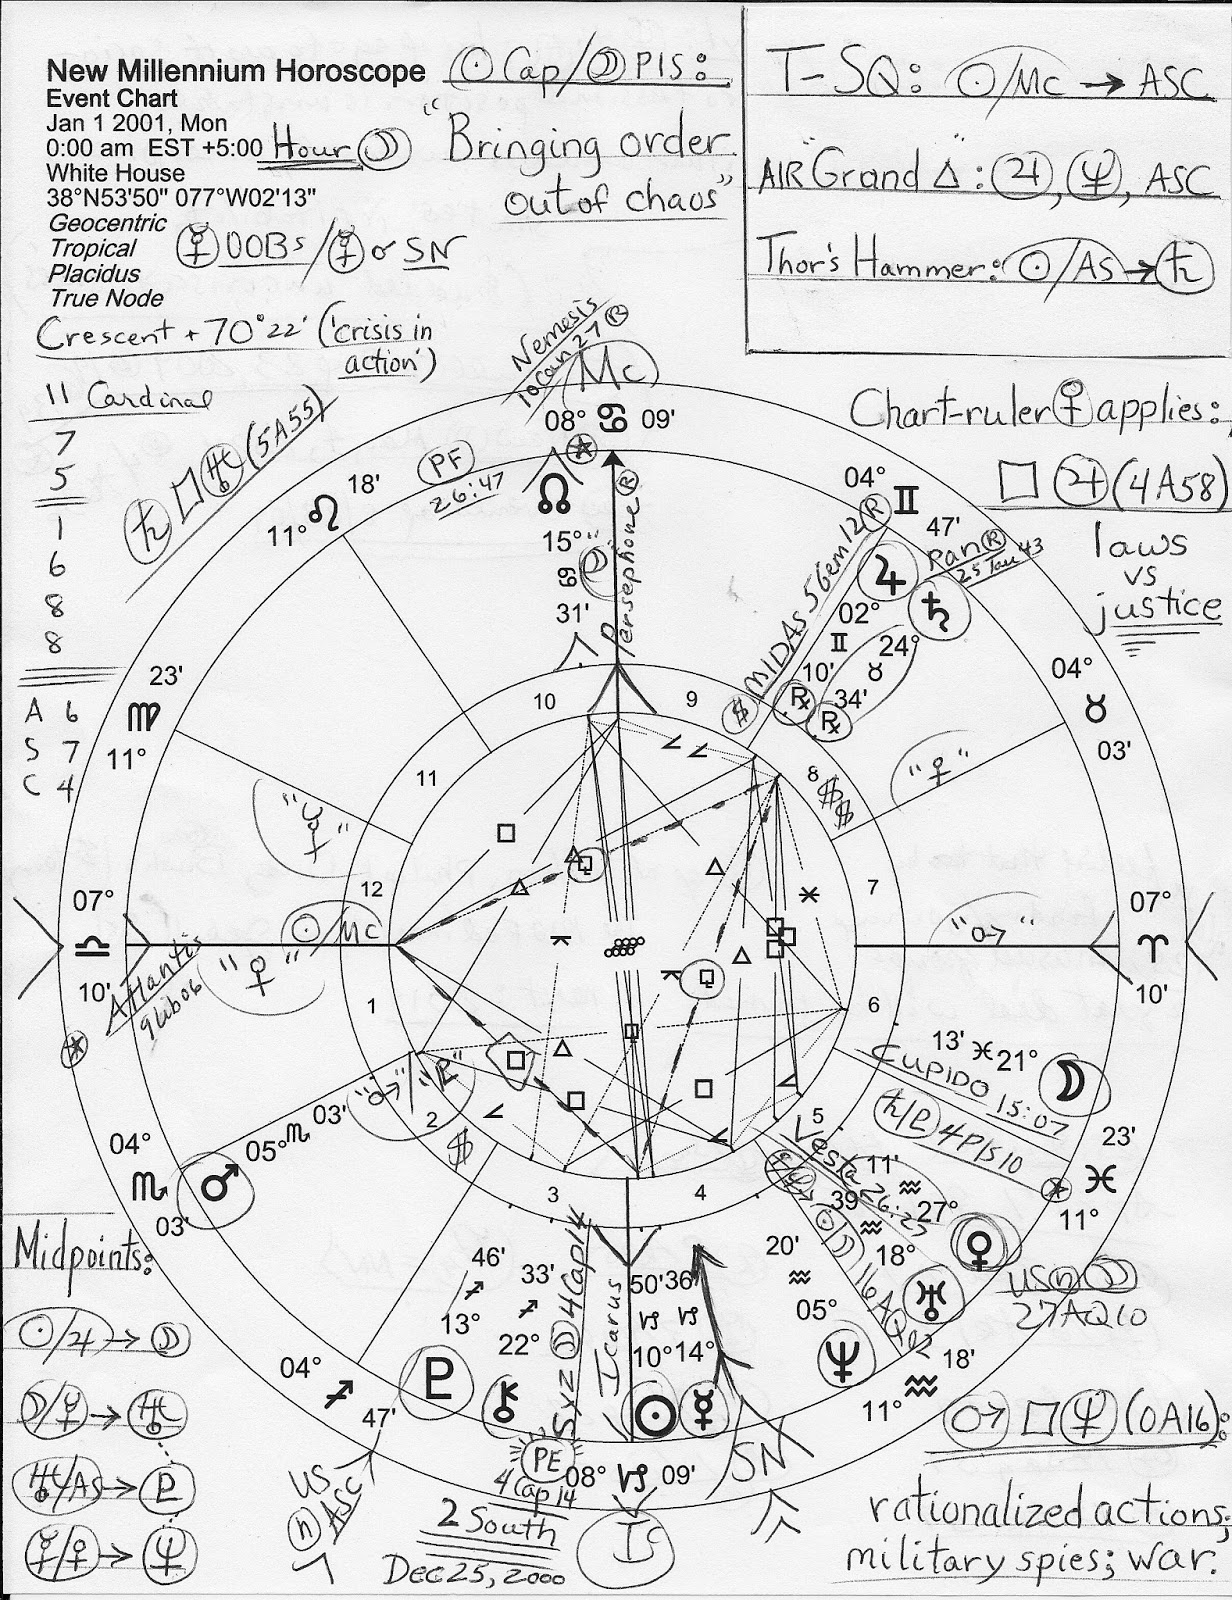 New Millennium Horoscope
Event Chart
Jan 1 2001, Mon
0:00 am EST +5:00 Hour ☽
White House
38°N53'50" 077°W02'13"
Geocentric
Tropical
Placidus
True Node
☿ OOBs/☿ ☌ SN
Crescent + 70°22' ('crisis in
action')
☉ Cap/☽ PIS:
"Bringing order
out of chaos"
T-SQ: ☉/Mc → ASC
"AIR Grand △": ♃, ♆, ASC
Thor's Hammer: ☉/AS → ♄
11 Cardinal
7
5
1
6
8
8
A 6
S 7
C 4
♄ □ ♅ (5A55)
Nemesis
10 Can 27 ®
Mc
08° ♋ 09'
PF
26:47
18'
11° ♌
☊
15°
♋
31'
"☽"
Persephone ®
04°
♊
47'
$ MIDAS 5 Gem 12 ®
Pan ®
25 Tau 43
♃
02°
♊
10'
℞
♄
24°
♉
34'
℞
Chart-ruler ♀ applies:
□ ♃ (4A58)
laws
vs
justice
23'
♍
11°
04°
♉
03'
10
9
11
8
$$
"♀"
"☿"
12
7
07°
♎
10'
☉/Mc
"♀"
Atlantis
9 Lib 06
"♂"
07°
♈
10'
1
6
2
$
5
3
4
"♂"/"♇"
03'
♏
05°
♂
04°
♏
03'
13' ♓ 21° ☽
CUPIDO 15:07
♄/♇ 4 PIS 10
23'
♓
11°
Vesta 26:23
11'
♒
27°
♀
39'
♒
18°
♅
☉/☽ 16 AQ 02
20'
♒
05°
♆
US ⓝ ☽
27 AQ 10
18'
♒
11°
Midpoints:
☉/♃ → ☽
☽/☿ → ♅
♅/AS → ♇
☿/♀ → ♆
46'
♐
13°
♇
33'
♐
22°
⚷
SyZ ☽ 4 Cap 14
Icarus
50'
♑
10°
☉
36'
♑
14°
☿
04°
♐
47'
US
ⓝ ASC
PE
4 Cap 14
08° ♑ 09'
Ic
SN
2 South
Dec 25, 2000
♂ □ ♆ (0A16):
rationalized actions;
military spies; war.